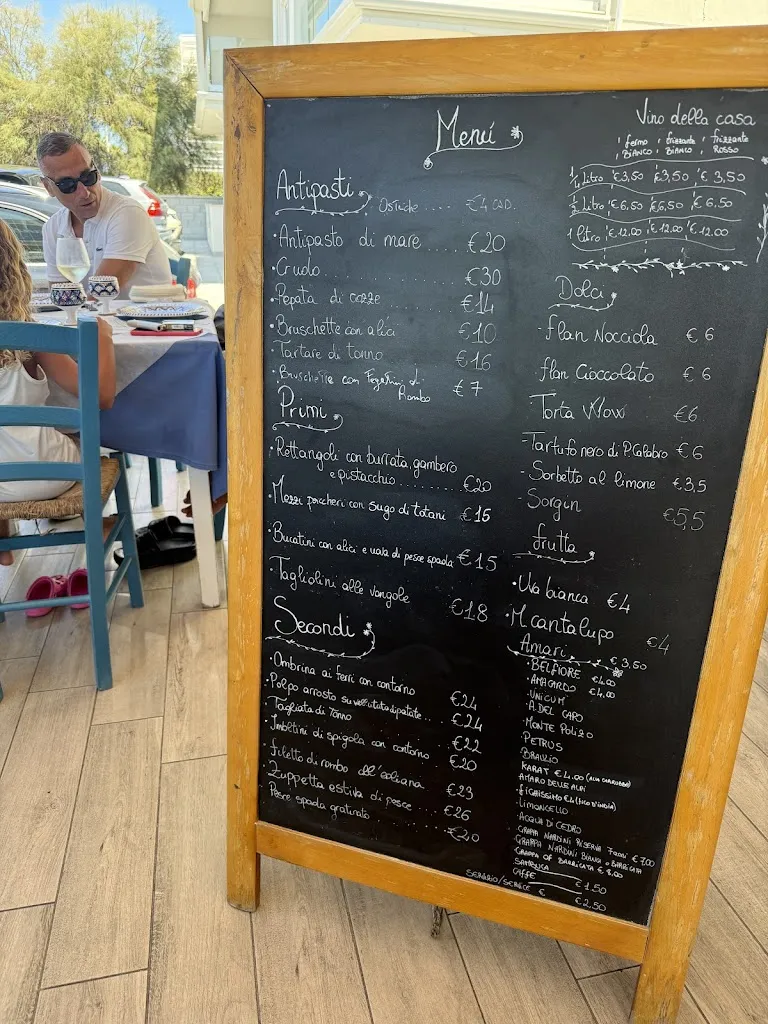 Menú
Antipasti
Ostriche .... €4 CAD.
• Antipasto di mare .... €20
• Crudo .... €30
• Pepata di cozze .... €14
• Bruschette con alici €10
• Tartare di tonno €16
• Bruschette con Fegatini di Rombo €7
Primi
• Rettangoli con burrata, gambero
e pistacchio .... €20
• Mezzi paccheri con sugo di totani €15
• Bucatini con alici e uova di pesce spada €15
• Tagliolini alle vongole €18
Secondi
• Ombrina ai ferri con contorno €24
• Polpo arrosto su vellutata di patate ... €24
• Tagliata di Tonno €22
• Involtini di spigola con contorno €20
• Filetto di rombo all'eoliana €23
• Zuppetta estiva di pesce .... €26
• Pesce spada gratinato .... €20
Vino della casa
fermo BIANCO frizzante BIANCO frizzante ROSSO
1/4 Litro €3,50 €3,50 €3,50
1/2 Litro €6,50 €6,50 €6,50
1 litro €12,00 €12,00 €12,00
Dolci
- Flan Nocciola €6
- flan Cioccolato €6
- Torta Wow €6
- Tartufo nero di P.Calabro €6
- Sorbetto al limone €3,5
- Sorgin €5,5
frutta
• Uva bianca €4
• M cantalupo €4
Amari €3,50
• BELFIORE €4,00
• AMACARDO €4,00
• UNICUM
• A. DEL CAPO
• MONTE POLIZO
• PETRUS
• BRAULIO
KARAT €4.00
AMARO DELLE ALPI
• FICHISSIMO €4 (FICO D'INDIA)
• LIMONCELLO
• ACQUA DI CEDRO
• GRAPPA NARDINI RISERVA 7 anni €7,00
GRAPPA NARDINI BIANCA o BARRICATA
GRAPPA OF BARRICATA €8.00
SAMBUCA
CAFFE €1.50
SERVIZIO/SERVICE € €2,50